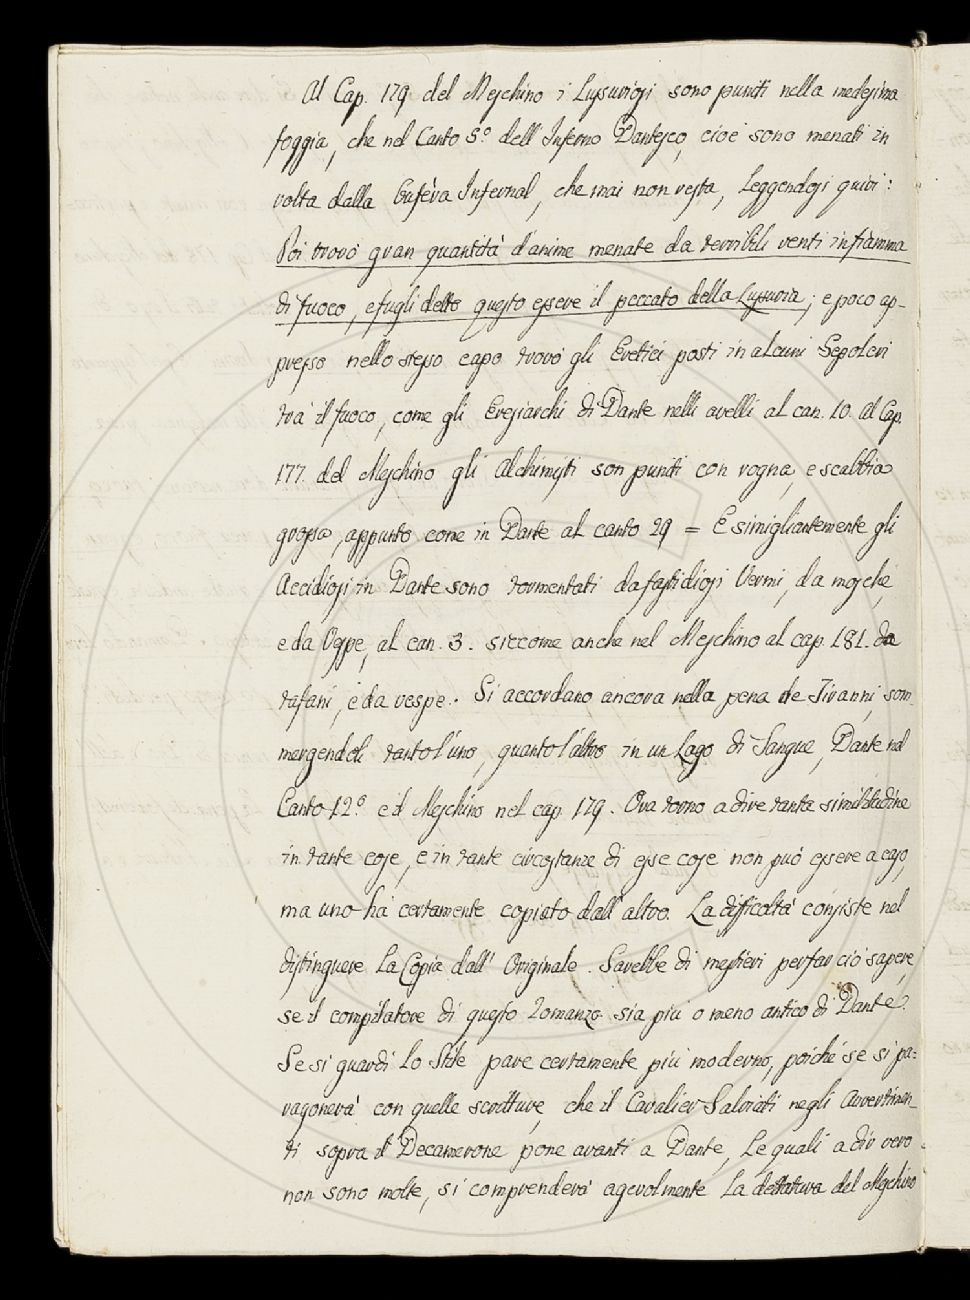 Al Cap. 179 del Meschino i Lussuriosi sono puniti nella medesima
foggia, che nel Canto 5.º dell' Inferno Dantesco, cioè sono menati in
volta dalla Bufèra Infernal, che mai non resta, Leggendosi quivi:
Poi trovò gran quantità d'anime menate da terribili venti in fiamma
di fuoco, e fugli detto questo essere il peccato della Lussuria; e poco ap-
presso nello stesso capo trovò gli Eretici posti in alcuni Sepolcri
trà il fuoco, come gli Eresiarchi di Dante nelli avelli al can. 10. Al Cap.
177. del Meschino gli Alchimisti son puniti con rogna, e scabbia
grossa, appunto come in Dante al canto 29 = E simigliantemente gli
Accidiosi in Dante sono tormentati da fastidiosi Vermi, da mosche,
e da Vespe, al can. 3. siccome anche nel Meschino al cap. 181. da
tafani, e da vespe.. Si accordano ancora nella pena de Tiranni, som-
mergendoli tanto l'uno, quanto l'altro in un Lago di Sangue, Dante nel
Canto 12.º e il Meschino nel cap. 179. Ora torno a dire tanta similitudine
in tante cose, e in tante circostanze di esse cose non può essere a caso,
ma uno hà certamente copiato dall' altro. La difficoltà consiste nel
distinguere La Copia dall' Originale. Sarebbe di mestieri per far ciò sapere,
se il compilatore di questo Romanzo sia più o meno antico di Dante.
Se si guardi Lo Stile pare certamente più moderno, poichè se si pa=
ragonerà con quelle scritture, che il Cavalier Salviati negli Avvertimen-
ti sopra il Decamerone pone avanti a Dante, Le quali a dir vero
non sono molte, si comprenderà agevolmente La dettatura del Meschino